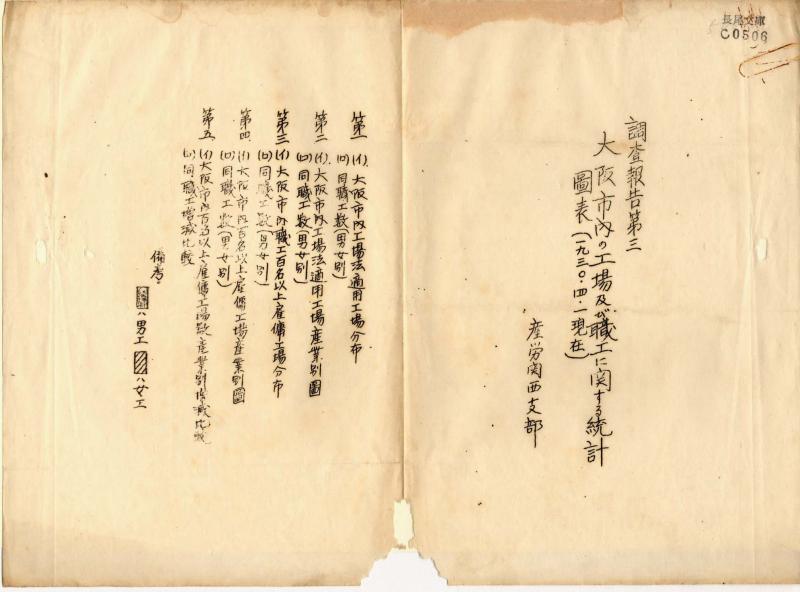 長尾文庫
C0506
調査報告第三
大阪市內の工場及び職工に関する統計
圖表(一九三〇・四・一現在)
産労関西支部
第一 (イ) 大阪市內工場法適用工場分布
(ロ) 同職工数(男女別)
第二 (イ) 大阪市內工場法適用工場産業別圖
(ロ) 同職工数(男女別)
第三 (イ) 大阪市內職工百名以上雇傭工場分布
(ロ) 同職工数(男女別)
第四 (イ) 大阪市內百名以上雇傭工場産業別圖
(ロ) 同職工数(男女別)
第五 (イ) 大阪市內百名以上雇傭工場数産業別増減比較
(ロ) 同職工増減比較
備考
ハ男工 ハ女工